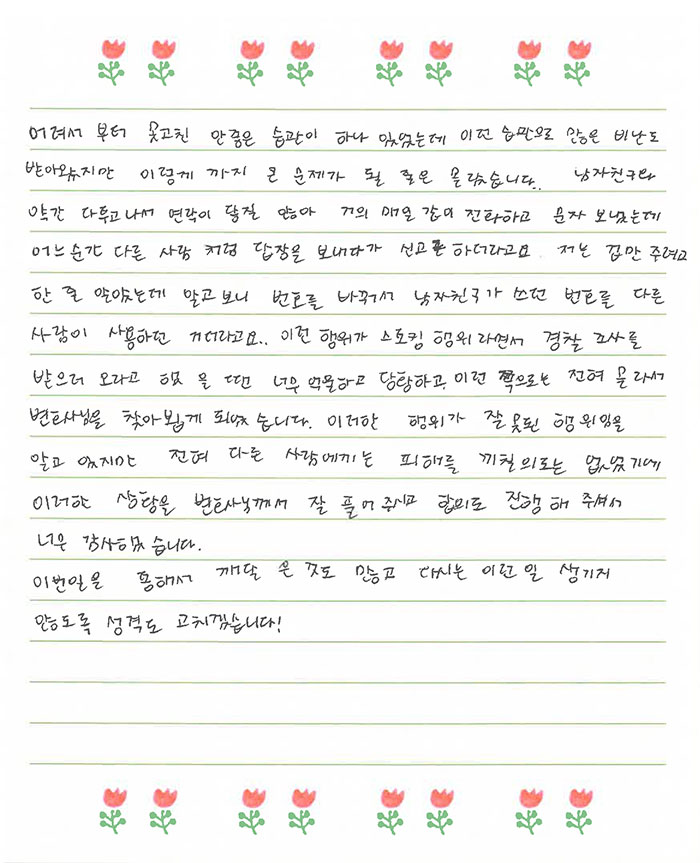 어려서 부터 못고친 안좋은 습관이 하나 있었는데 이런 습관으로 많은 비난도
받아왔지만 이렇게 까지 큰 문제가 될 줄은 몰랐습니다. 남자친구와
약간 다투고나서 연락이 닿질 않아 거의 매일 같이 전화하고 문자 보냈는데
어느순간 다른 사람 처럼 답장을 보내다가 신고를 하더라고요. 저는 겁만 주려고
한 줄 알았는데 알고보니 번호를 바꿔서 남자친구가 쓰던 번호를 다른
사람이 사용하던 거더라고요.. 이런 행위가 스토킹 행위라면서 경찰 조사를
받으러 오라고 했을 땐 너무 억울하고 당황하고, 이런 쪽으로는 전혀 몰라서
변호사님을 찾아뵙게 되었습니다. 이러한 행위가 잘못된 행위임을
알고 있지만 전혀 다른 사람에게는 피해를 끼칠의도는 없었기에
이러한 상황을 변호사님께서 잘 풀어주시고 합의도 진행해 주셔서
너무 감사했습니다.
이번일을 통해서 깨달은 것도 많고 다시는 이런일 생기지
않도록 성격도 고치겠습니다!